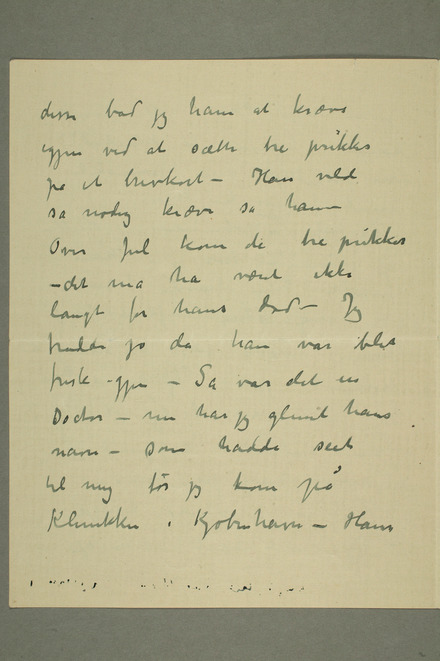 disse bad jeg ham at kræve
igjen ved at sætte tre prikker
på et brevkort – Han vilde
så nødig kræve sa han –
Over jul kom de tre prikker
– det må ha været ikke
langt før hans død – Jeg
trodde jo da han var blet
frisk igjen – Så var det en
Doctor – nu har jeg glemt hans
navn – som hadde seet
til mig før jeg kom på
Klinikken i Kjøbenhavn – Hans